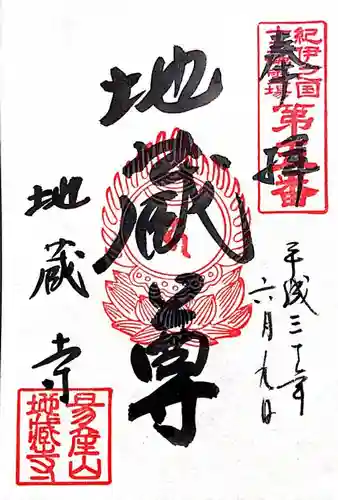 奉拝
紀伊之国
第三番
平成三十年
六月九日
地蔵尊
地蔵寺
易産山
地蔵寺